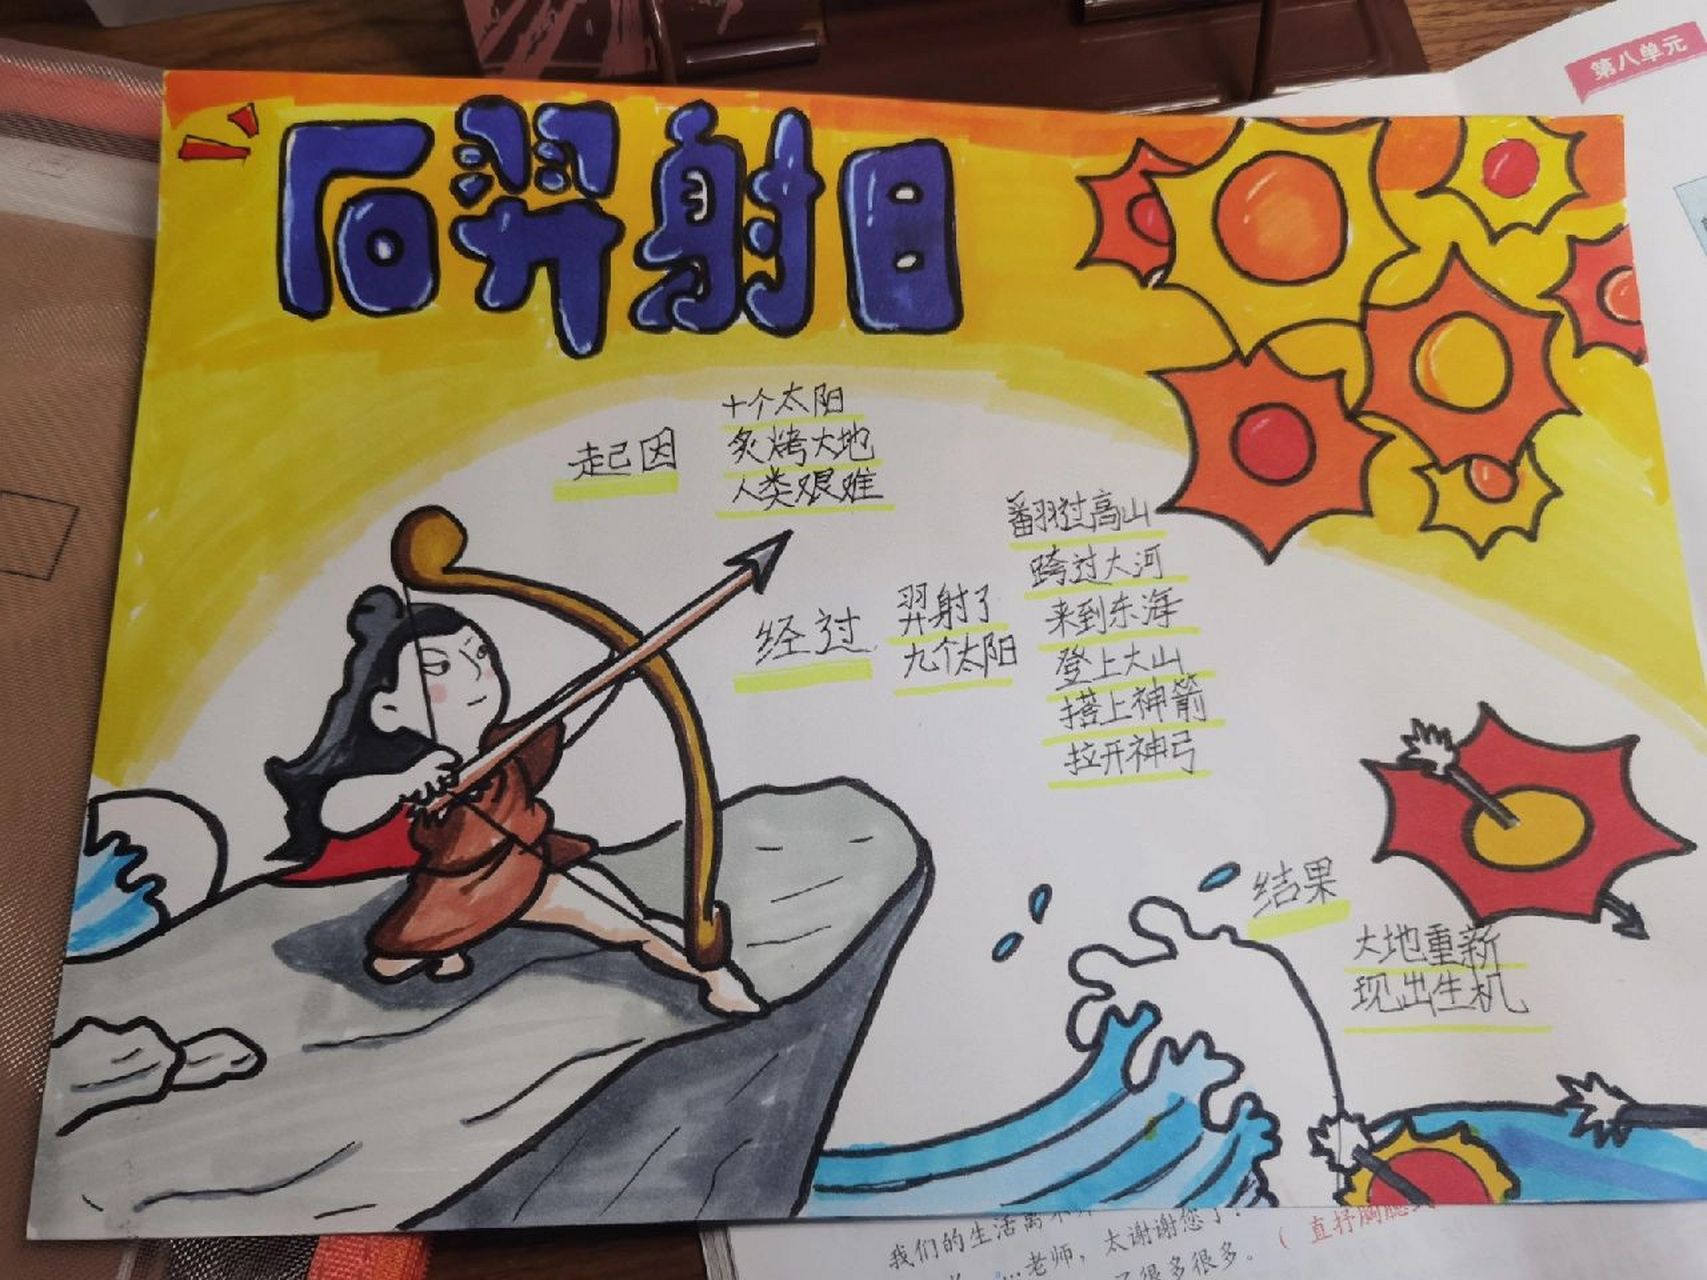 后羿射日
起因
十个太阳
炙烤大地
人类艰难
经过
羿射了
九个太阳
翻过高山
跨过大河
来到东海
登上大山
搭上神箭
拉开神弓
结果
大地重新
现出生机
第八单元
我们的生活离不
老师，太谢谢您了！
很多很多。
（直抒胸臆